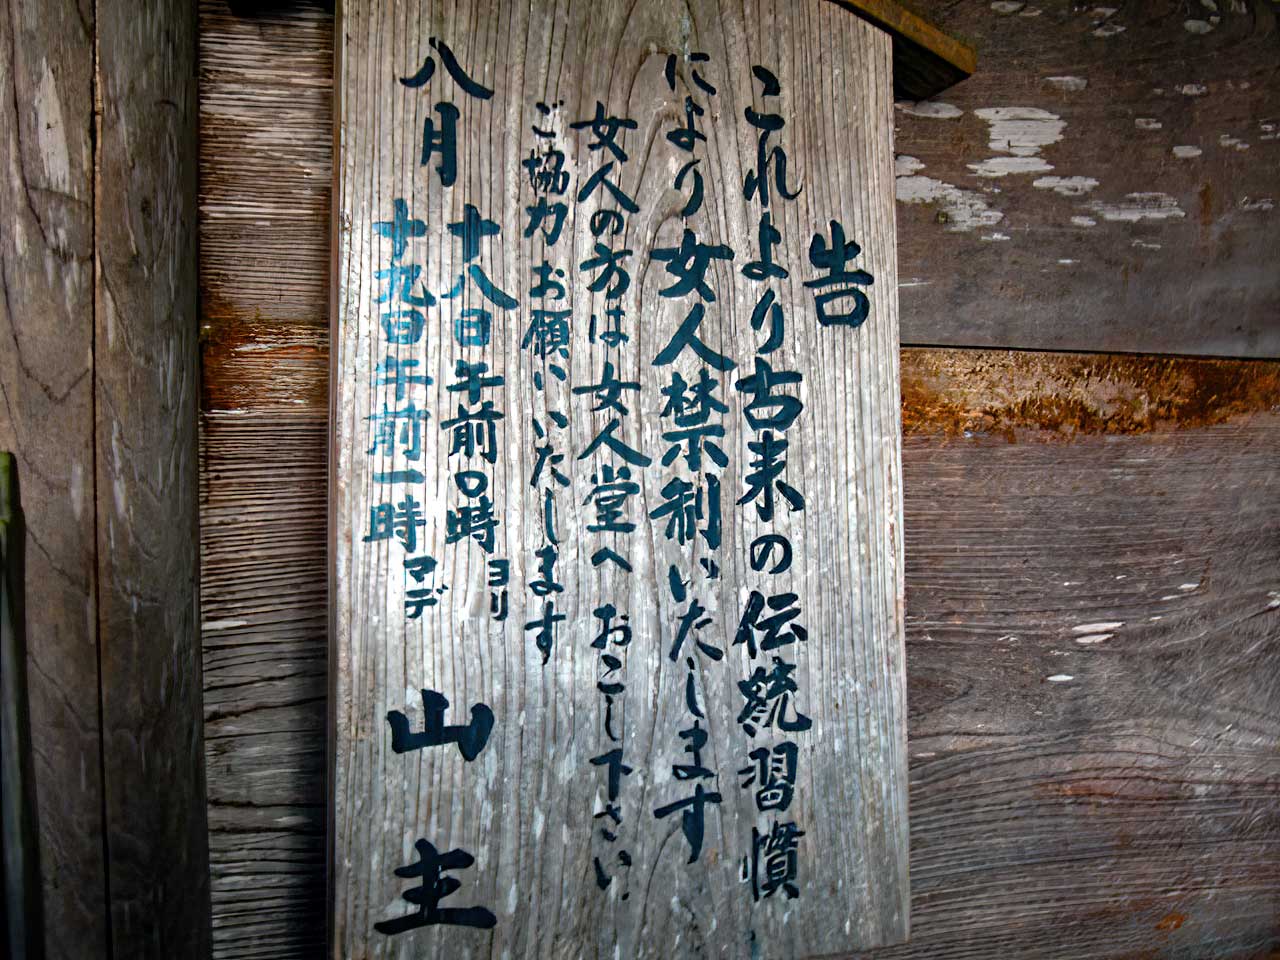 告
これより古来の伝統習慣
により女人禁制いたします
女人の方は女人堂へおこし下さい
ご協力お願いいたします
八月
十八日午前〇時ヨリ
十九日午前一時マデ
山主